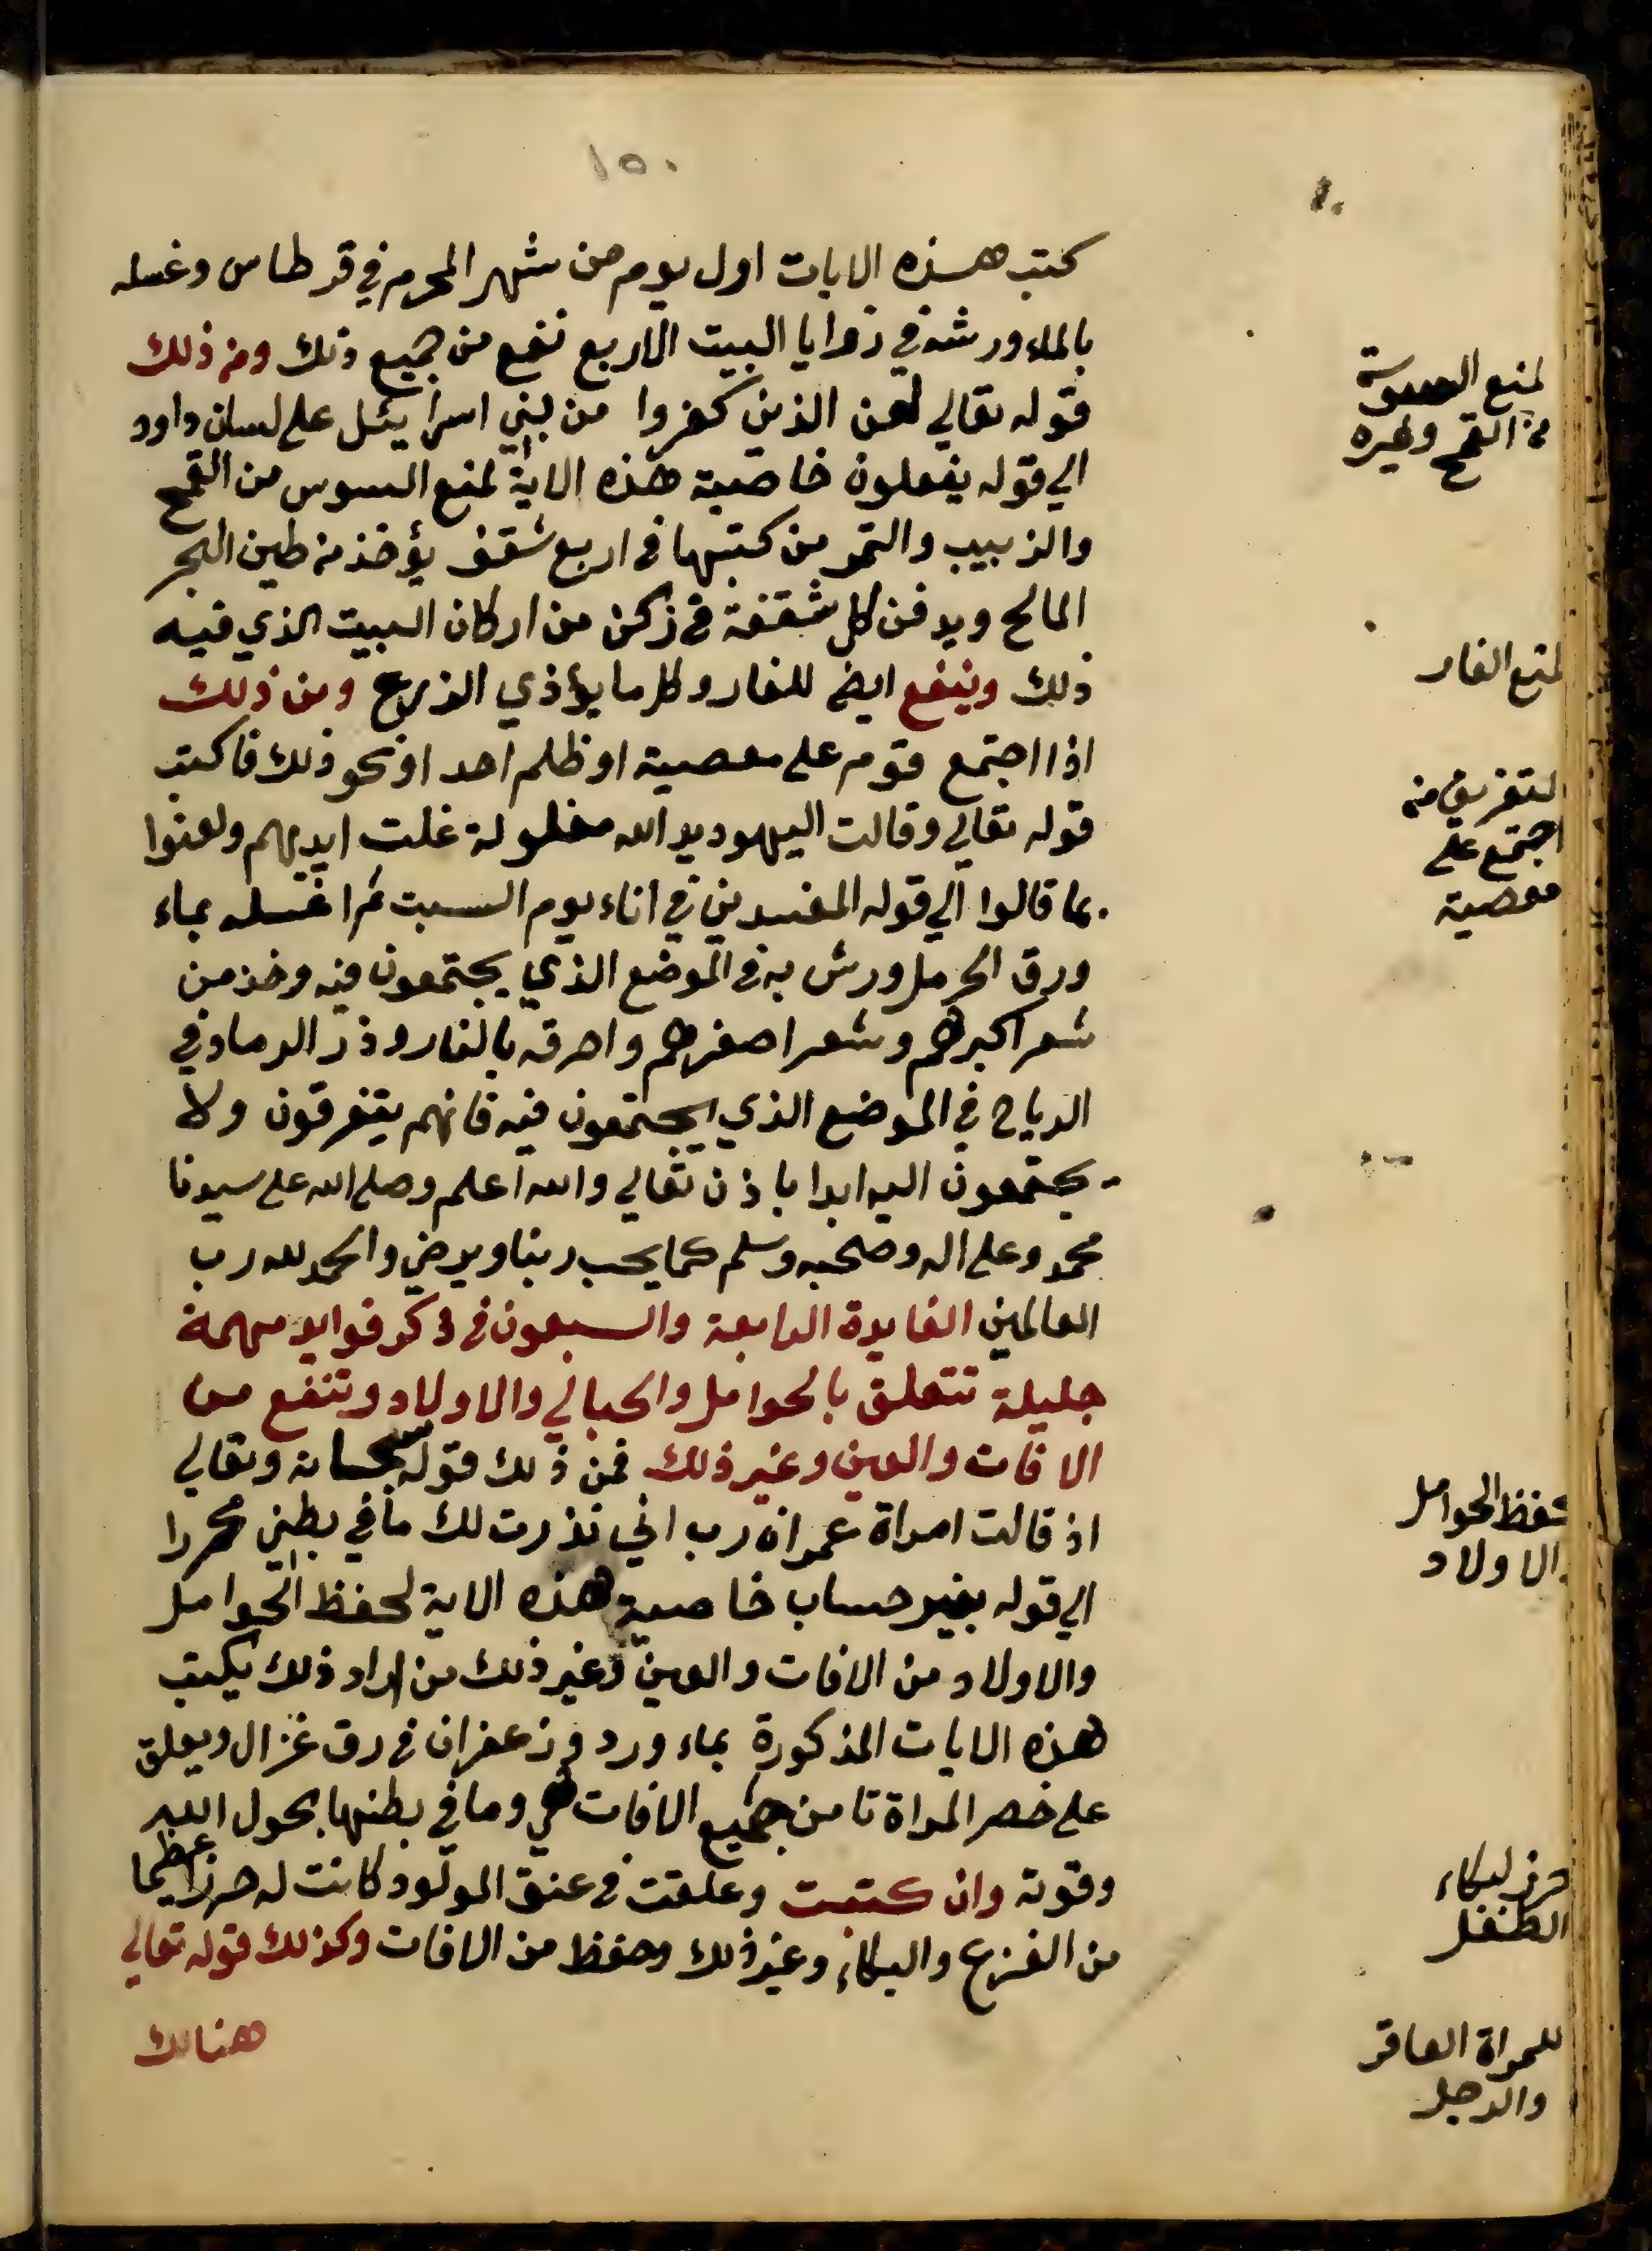 ١٥٠
كتب هذه الايات اول يوم من شهر المحرم في قرطاس وغسله
بالماء ورشه في زوايا البيت الاربع نفع من جميع ذلك ومن ذلك
قوله تعالي لعن الذين كفروا من بني اسرايئل على لسان داود
الي قوله يفعلون خاصية هذه الاية لمنع السوس من القمح
والزبيب والتمر من كتبها في اربع شقف يؤخذ من طين البحر
المالح ويدفن كل شقفة في ركن من اركان البيت الذي فيه
ذلك وينفع ايضا للفار وكل ما يؤذي الزرع ومن ذلك
اذا اجتمع قوم على معصية او ظلم احد او نحو ذلك فاكتب
قوله تعالي وقالت اليهود يد الله مغلولة غلت ايديهم ولعنوا
بما قالوا الي قوله المفسدين في اناء يوم السبت ثم اغسله بماء
ورق الحرمل ورش به في الموضع الذي يجتمعون فيه وخذ من
شعر اكبرهم وشعر اصغرهم واحرقه بالنار وذر الرماد في
الرياح في الموضع الذي يجتمعون فيه فانهم يتفرقون ولا
يجتمعون اليه ابدا باذن تعالي والله اعلم وصلى الله على سيدنا
محمد وعلى اله وصحبه وسلم كما يحب ربنا ويرضي والحمد لله رب
العالمين الفايدة الرابعة والسبعون في ذكر فوايد مهمة
جليلة تتعلق بالحوامل والحبالي والاولاد وتنفع من
الافات والعين وغير ذلك فمن ذلك قوله سبحانه وتعالي
اذ قالت امراة عمران رب اني نذرت لك ما في بطني محررا
الي قوله بغير حساب خاصية هذه الاية لحفظ الحوامل
والاولاد من الافات والعين وغير ذلك من اراد ذلك يكتب
هذه الايات المذكورة بماء ورد وزعفران في رق غزال ويعلق
على خصر المراة تامن جميع الافات هي وما في بطنها بحول الله
وقوته وان كتبت وعلقت في عنق المولود كانت له حرزا عظيما
من الفزع والبكاء وغير ذلك وحفظ من الافات وكذلك قوله تعالي
هنالك
لمنع السوسة
من القمح وغيره
لمنع الفار
لتفريق من
اجتمع على
معصية
لحفظ الحوامل
والاولاد
حرز لبكاء
الطفل
للمراة العاقر
والرجل